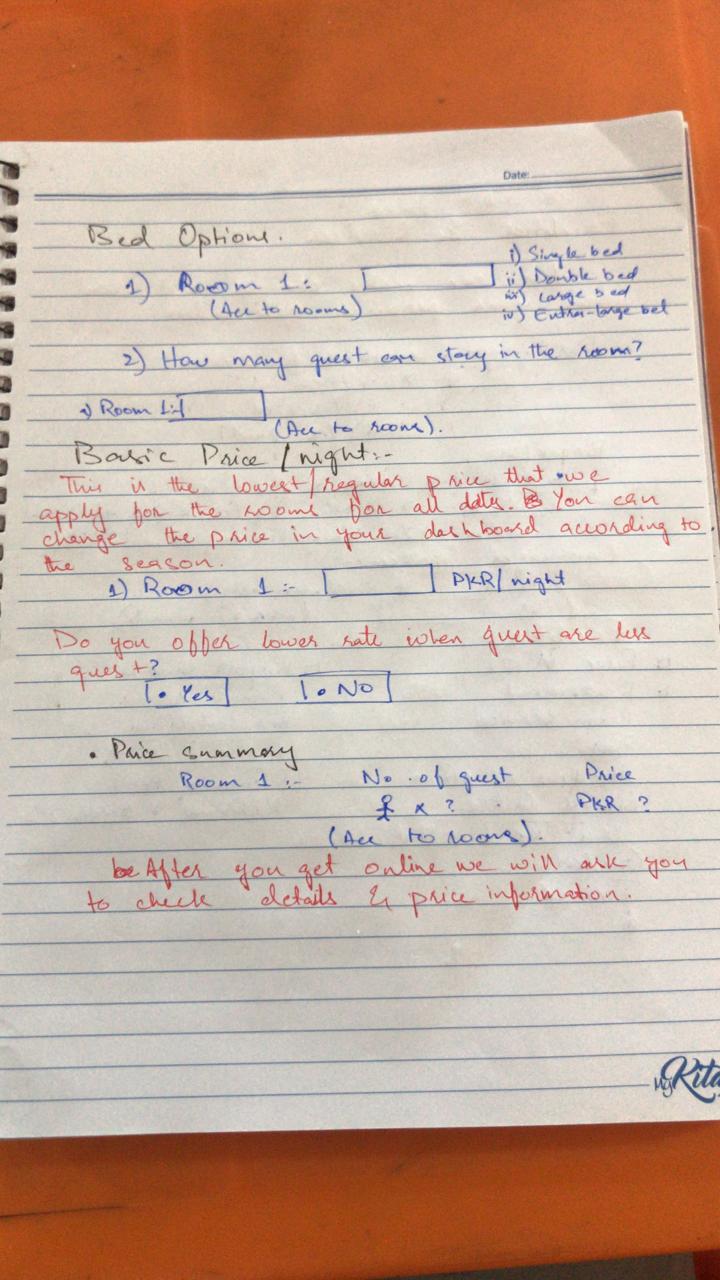 Date:
Bed Options.
1) Room 1: i) Single bed
(Acc to rooms) ii) Double bed
iii) Large bed
iv) Extra-large bed
2) How many guest can stay in the room?
a) Room 1:-
(Acc to rooms).
Basic Price / night:-
This is the lowest/regular price that we
apply for the rooms for all dates. You can
change the price in your dashboard according to
the season.
1) Room 1 :- PKR/night
Do you offer lower rate when guest are less
guest?
• Yes • No
• Price summary
Room 1 :- No. of guest Price
x ? PKR ?
(Acc to rooms).
After you get online we will ask you
to check details & price information.
My Kita